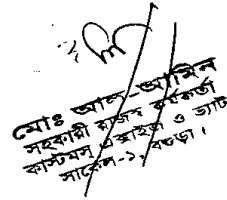 মোঃ আল-আমিন
সহকারী রাজস্ব কর্মকর্তা
কাস্টমস্ এক্সাইজ ও ভ্যাট
সার্কেল-১, বগুড়া।